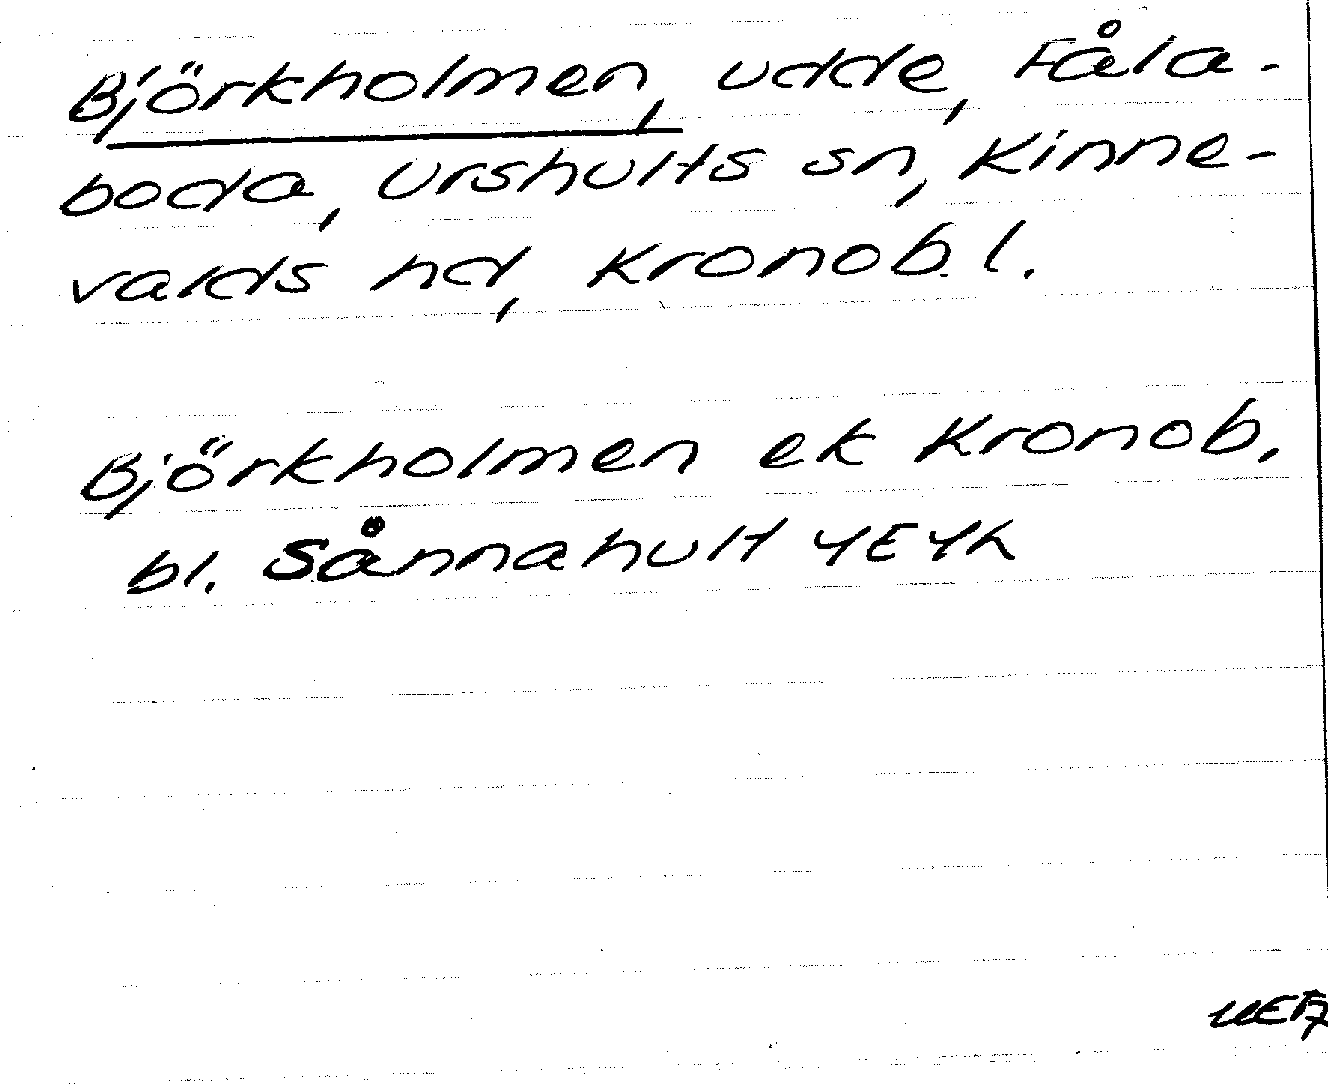 Björkholmen, udde, Fåla-
boda, Urshults sn, Kinne-
valds hd, Kronob. l.
Björkholmen ek Kronob.
bl. Sånnahult 4E4k